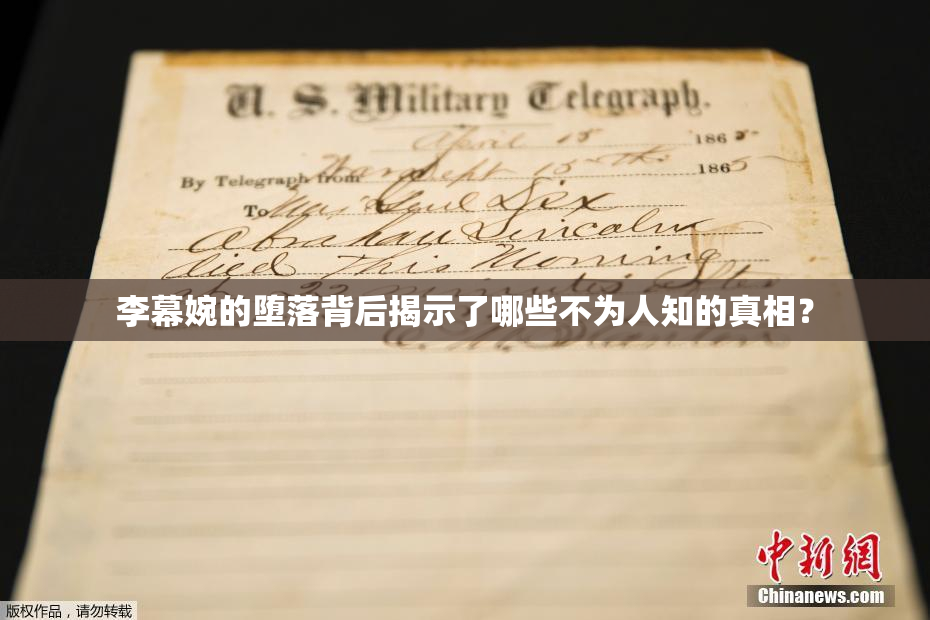 U. S. Military Telegraph.
April 15 1865
By Telegraph from War Dept 15th 1865
To Maj Genl Dix
Abraham Lincoln
died This Morning
at 22 minutes after
李幕婉的堕落背后揭示了哪些不为人知的真相？
E. M. Stanton
中新網
Chinanews.com
版权作品，请勿转载